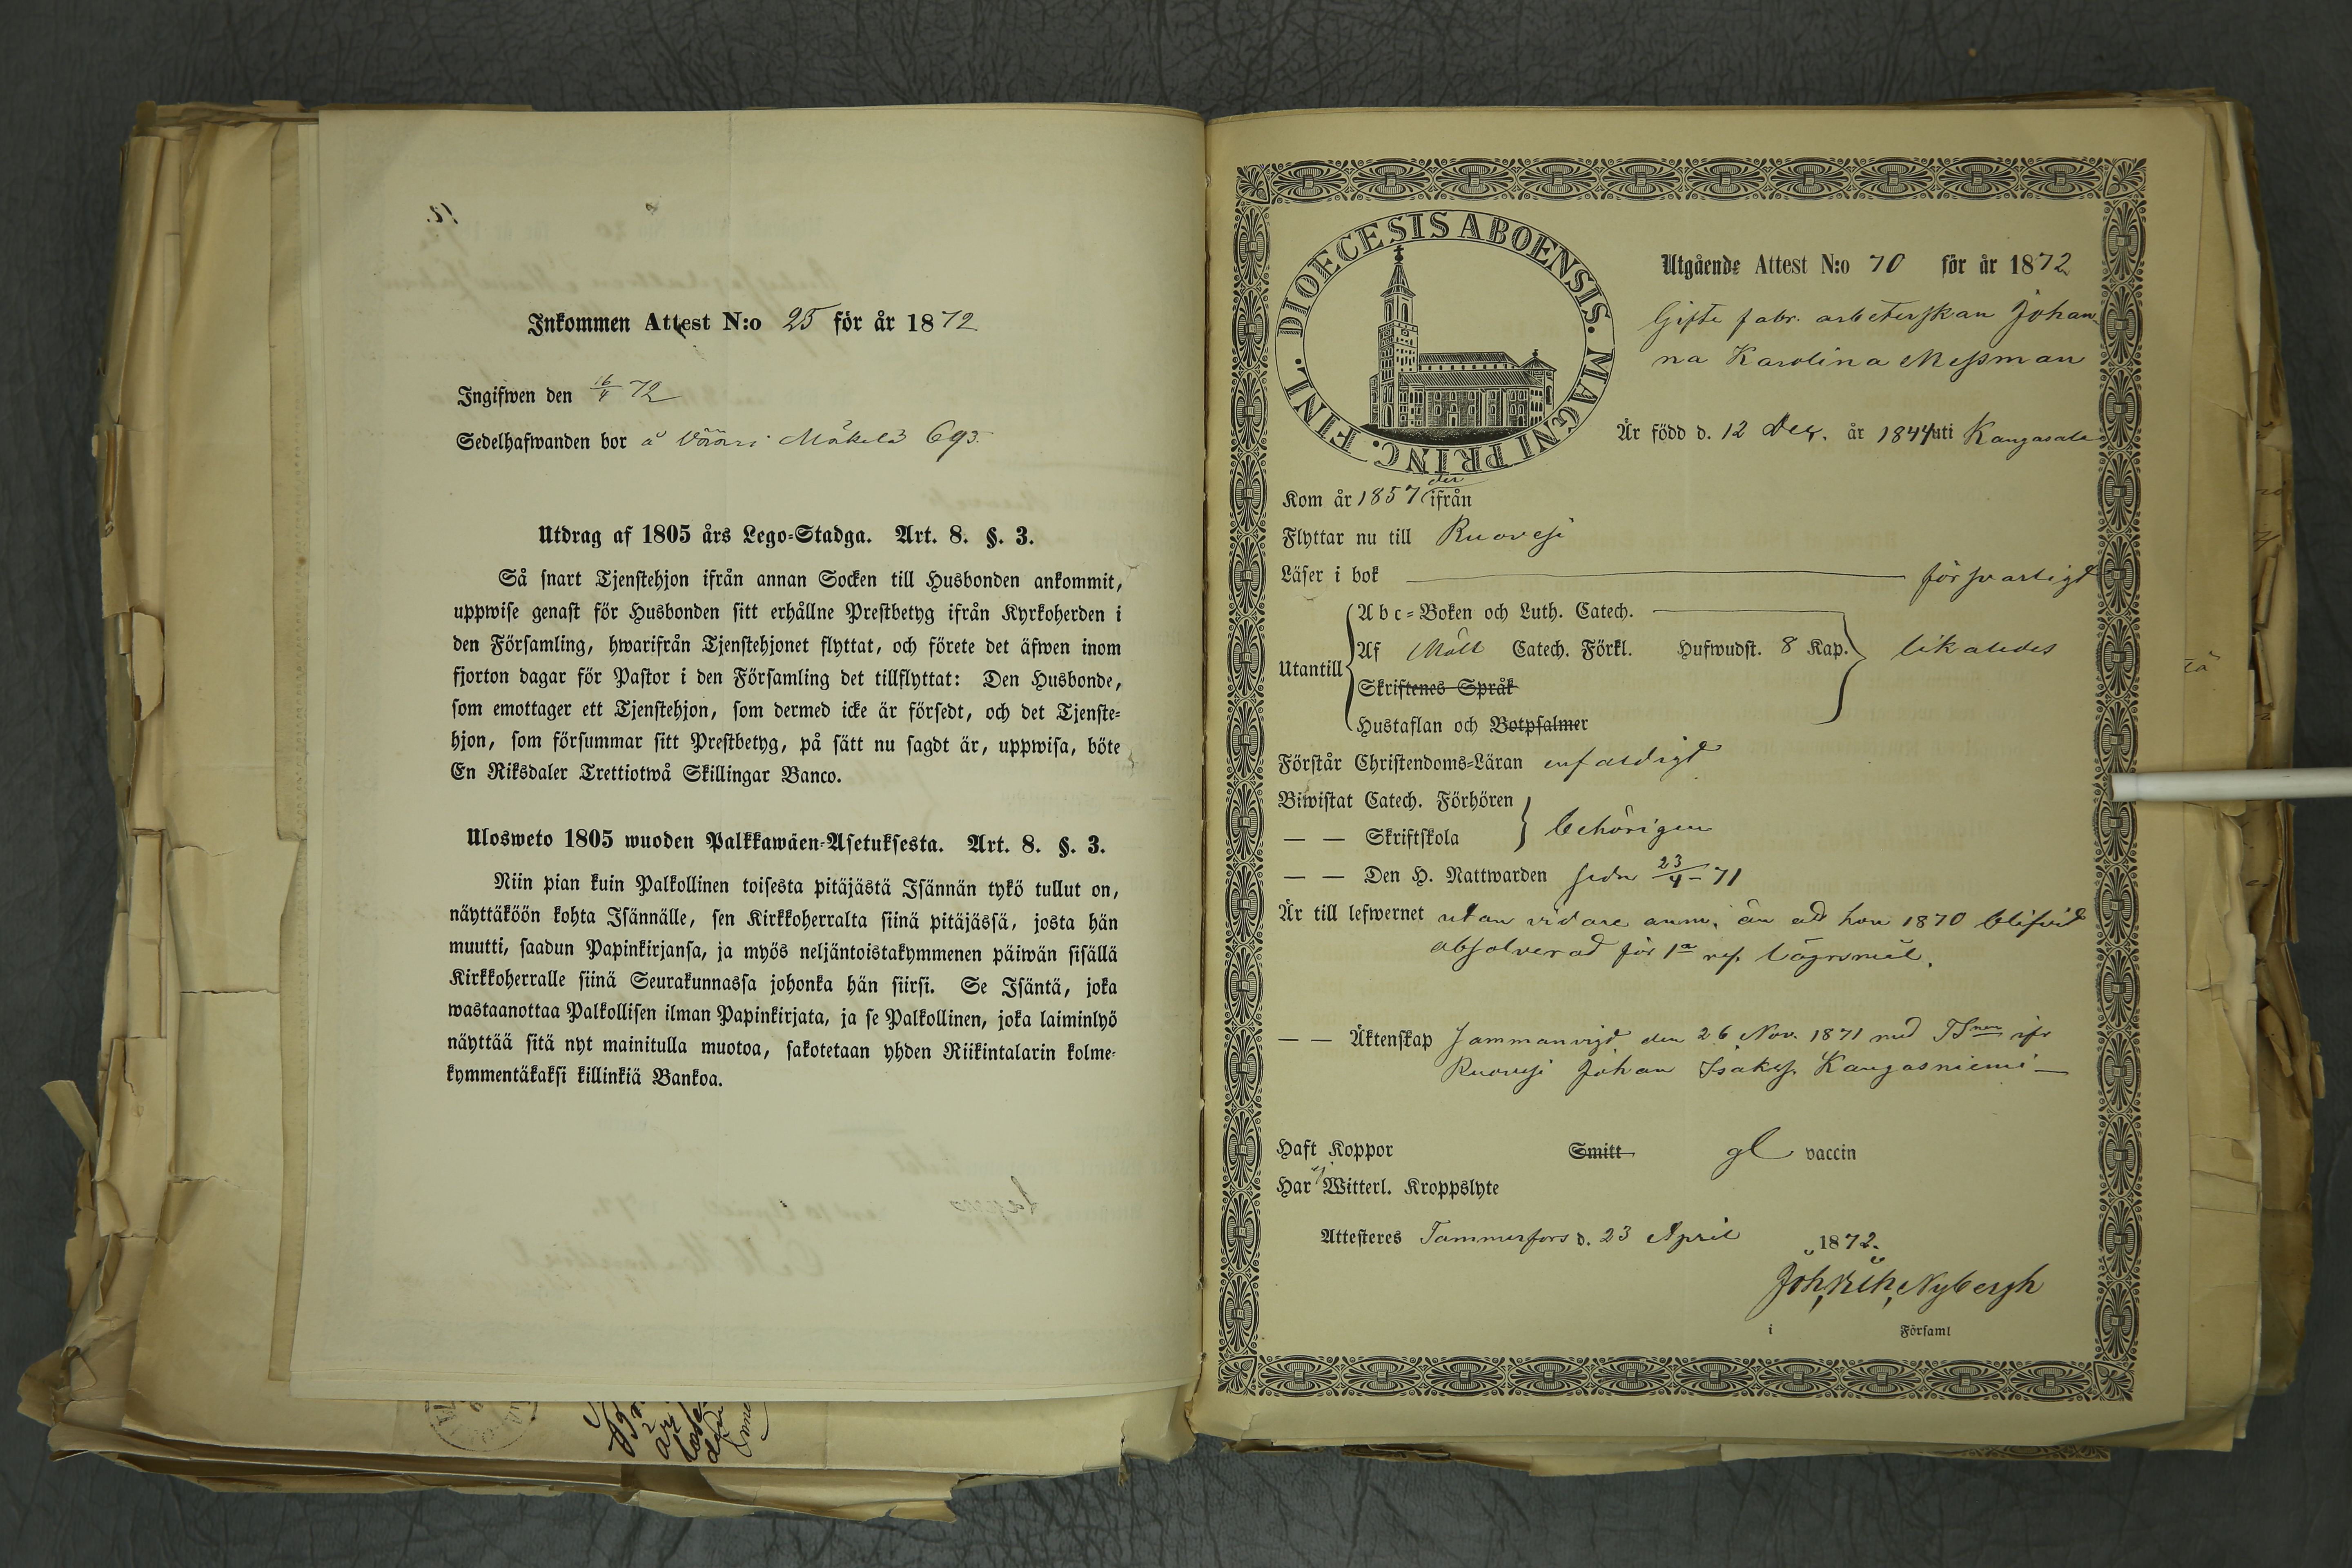 Inkommen Attest N:o 25 för år 1872
Ingifwen den 16/4 72
Sedelhafwanden bor å Vääri Mäkelä 693.
Utdrag af 1805 års Lego-Stadga. Art. 8. §. 3.
Så snart Tjenstehjon ifrån annan Socken till Husbonden ankommit,
uppwise genast för Husbonden sitt erhållne Prestbetyg ifrån Kyrkoherden i
den Församling, hwarifrån Tjenstehjonet flyttat, och förete det äfwen inom
fjorton dagar för Pastor i den Församling det tillflyttat: Den Husbonde,
som emottager ett Tjenstehjon, som dermed icke är försedt, och det Tjenste-
hjon, som försummar sitt Prestbetyg, på sätt nu sagdt är, uppwisa, böte
En Riksdaler Trettiotwå Skillingar Banco.
Ulosweto 1805 wuoden Palkkawäen-Asetuksesta. Art. 8. §. 3.
Niin pian kuin Palkollinen toisesta pitäjästä Isännän tykö tullut on,
näyttäköön kohta Isännälle, sen Kirkkoherralta siinä pitäjässä, josta hän
muutti, saadun Papinkirjansa, ja myös neljäntoistakymmenen päiwän sisällä
Kirkkoherralle siinä Seurakunnassa johonka hän siirsi. Se Isäntä, joka
wastaanottaa Palkollisen ilman Papinkirjata, ja se Palkollinen, joka laiminlyö
näyttää sitä nyt mainitulla muotoa, sakotetaan yhden Riikintalarin kolme-
kymmentäkaksi killinkiä Bankoa.
DIOECESIS ABOENSIS. MAGNI PRINC. FINL.
Utgående Attest N:o 70 för år 1872
Gifte fabr. arbeterskan Johan-
na Karolina Messman
Är född d. 12 Dec. år 1844 uti Kangasala
Kom år 1857 der ifrån
Flyttar nu till Ruovesi
Läser i bok försvarligt
Utantill
Abc-Boken och Luth. Catech.
Af Möll Catech. Förkl. Hufwudst. 8 Kap. likaledes
Skriftenes Språk
Hustaflan och Botpsalmer
Förstår Christendoms-Läran enfaldigt
Biwistat Catech. Förhören
— — Skriftskola behörigen
— — Den H. Nattwarden sedn 23/4 - 71
Är till lefwernet utan vidare anm. än att hon 1870 blifvit
absolverad för 1a res. lägersmål.
— — Äktenskap Sammanvigd den 26 Nov. 1871 med TSnen ifr
Ruovesi Johan Isakss. Kangasniemi —
Haft Koppor Smitt gl vaccin
Har ej Witterl. Kroppslyte
Attesteres Tammerfors d. 23 April 1872.
Joh, Nybergh
i Församl